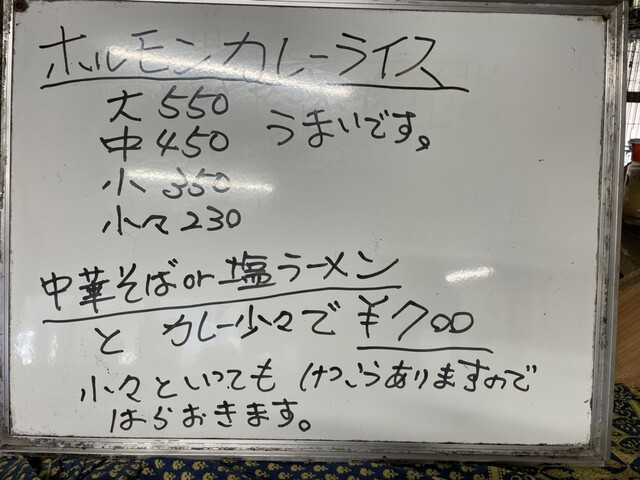 ホルモンカレーライス
大 550
中 450 うまいです。
小 350
小々 230
中華そばor塩ラーメン
と カレー少々で ¥700
小々といっても けっこうありますので
はらおきます。